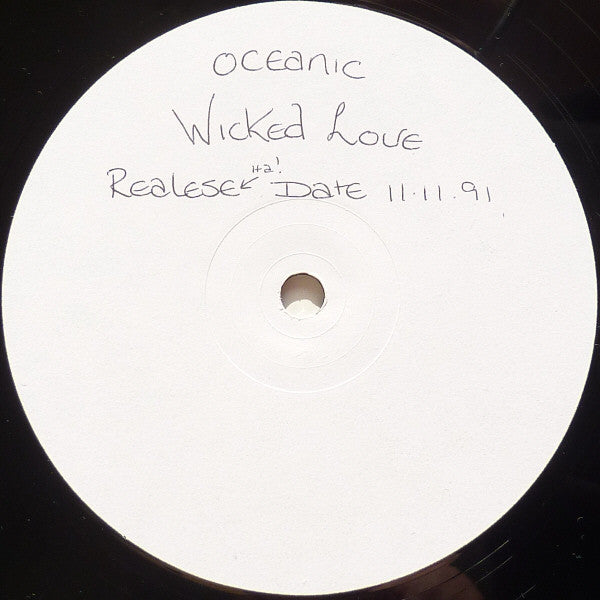 Oceanic
Wicked Love
Ha!
Realese Date 11.11.91